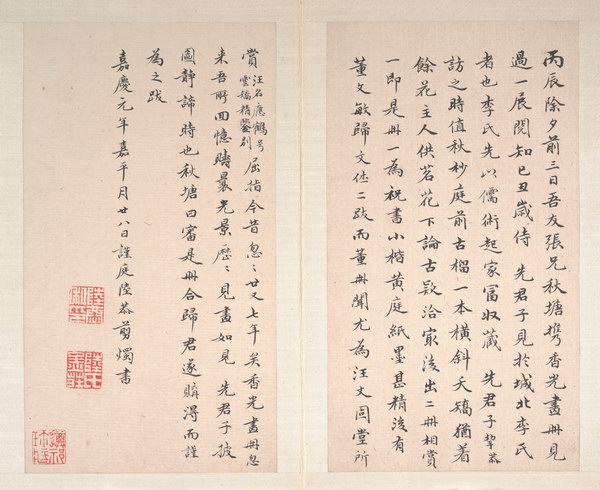 丙辰除夕前三日吾友張兄秋塘携香光畫冊見
過一展閱知己丑歲侍 先君子見於城北李氏
者也李氏先以儒術起家富収蔵 先君子挈恭
訪之時值秋杪庭前古榴一本橫斜夭矯猶著
餘花主人供茗花下論古歘洽宷後出二冊相賞
一即是冊一為祝書小楷黃庭紙墨甚精後有
董文敏歸文休二跋而董冊聞尤為汪文園堂所
賞汪名應鶴号雲攄精鑒别屈指今昔忽〻廿又七年矣香光畫冊忽
来吾所回憶疇曩光景歷〻見畫如見 先君子披
圖靜諦時也秋塘曰審是冊合歸君遂購淂而謹
為之跋
嘉慶元年嘉平月廿八日謹庭陸恭剪燭書